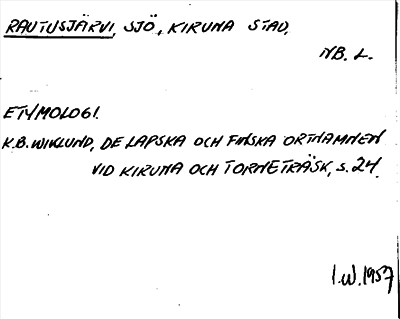 RAUTUSJÄRVI, SJÖ, KIRUNA STAD,
NB. L.
ETYMOLOGI.
K.B. WIKLUND, DE LAPSKA OCH FINSKA ORTNAMNEN
VID KIRUNA OCH TORNETRÄSK, s. 24.
I.W. 1957